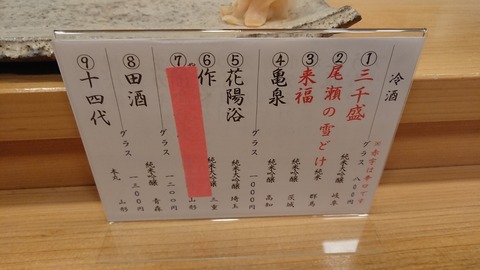 冷酒
※赤字は辛口です
①三千盛 純米大吟醸 岐阜
グラス 八〇〇円
②尾瀬の雪どけ 純米 群馬
③来福 純米吟醸 茨城
④亀泉 純米吟醸 高知
グラス 一〇〇〇円
⑤花陽浴 純米大吟醸 埼玉
⑥作 純米大吟醸 三重
⑦ 山形
グラス 一二〇〇円
⑧田酒 純米吟醸 青森
グラス 一三〇〇円
⑨十四代 本丸 山形